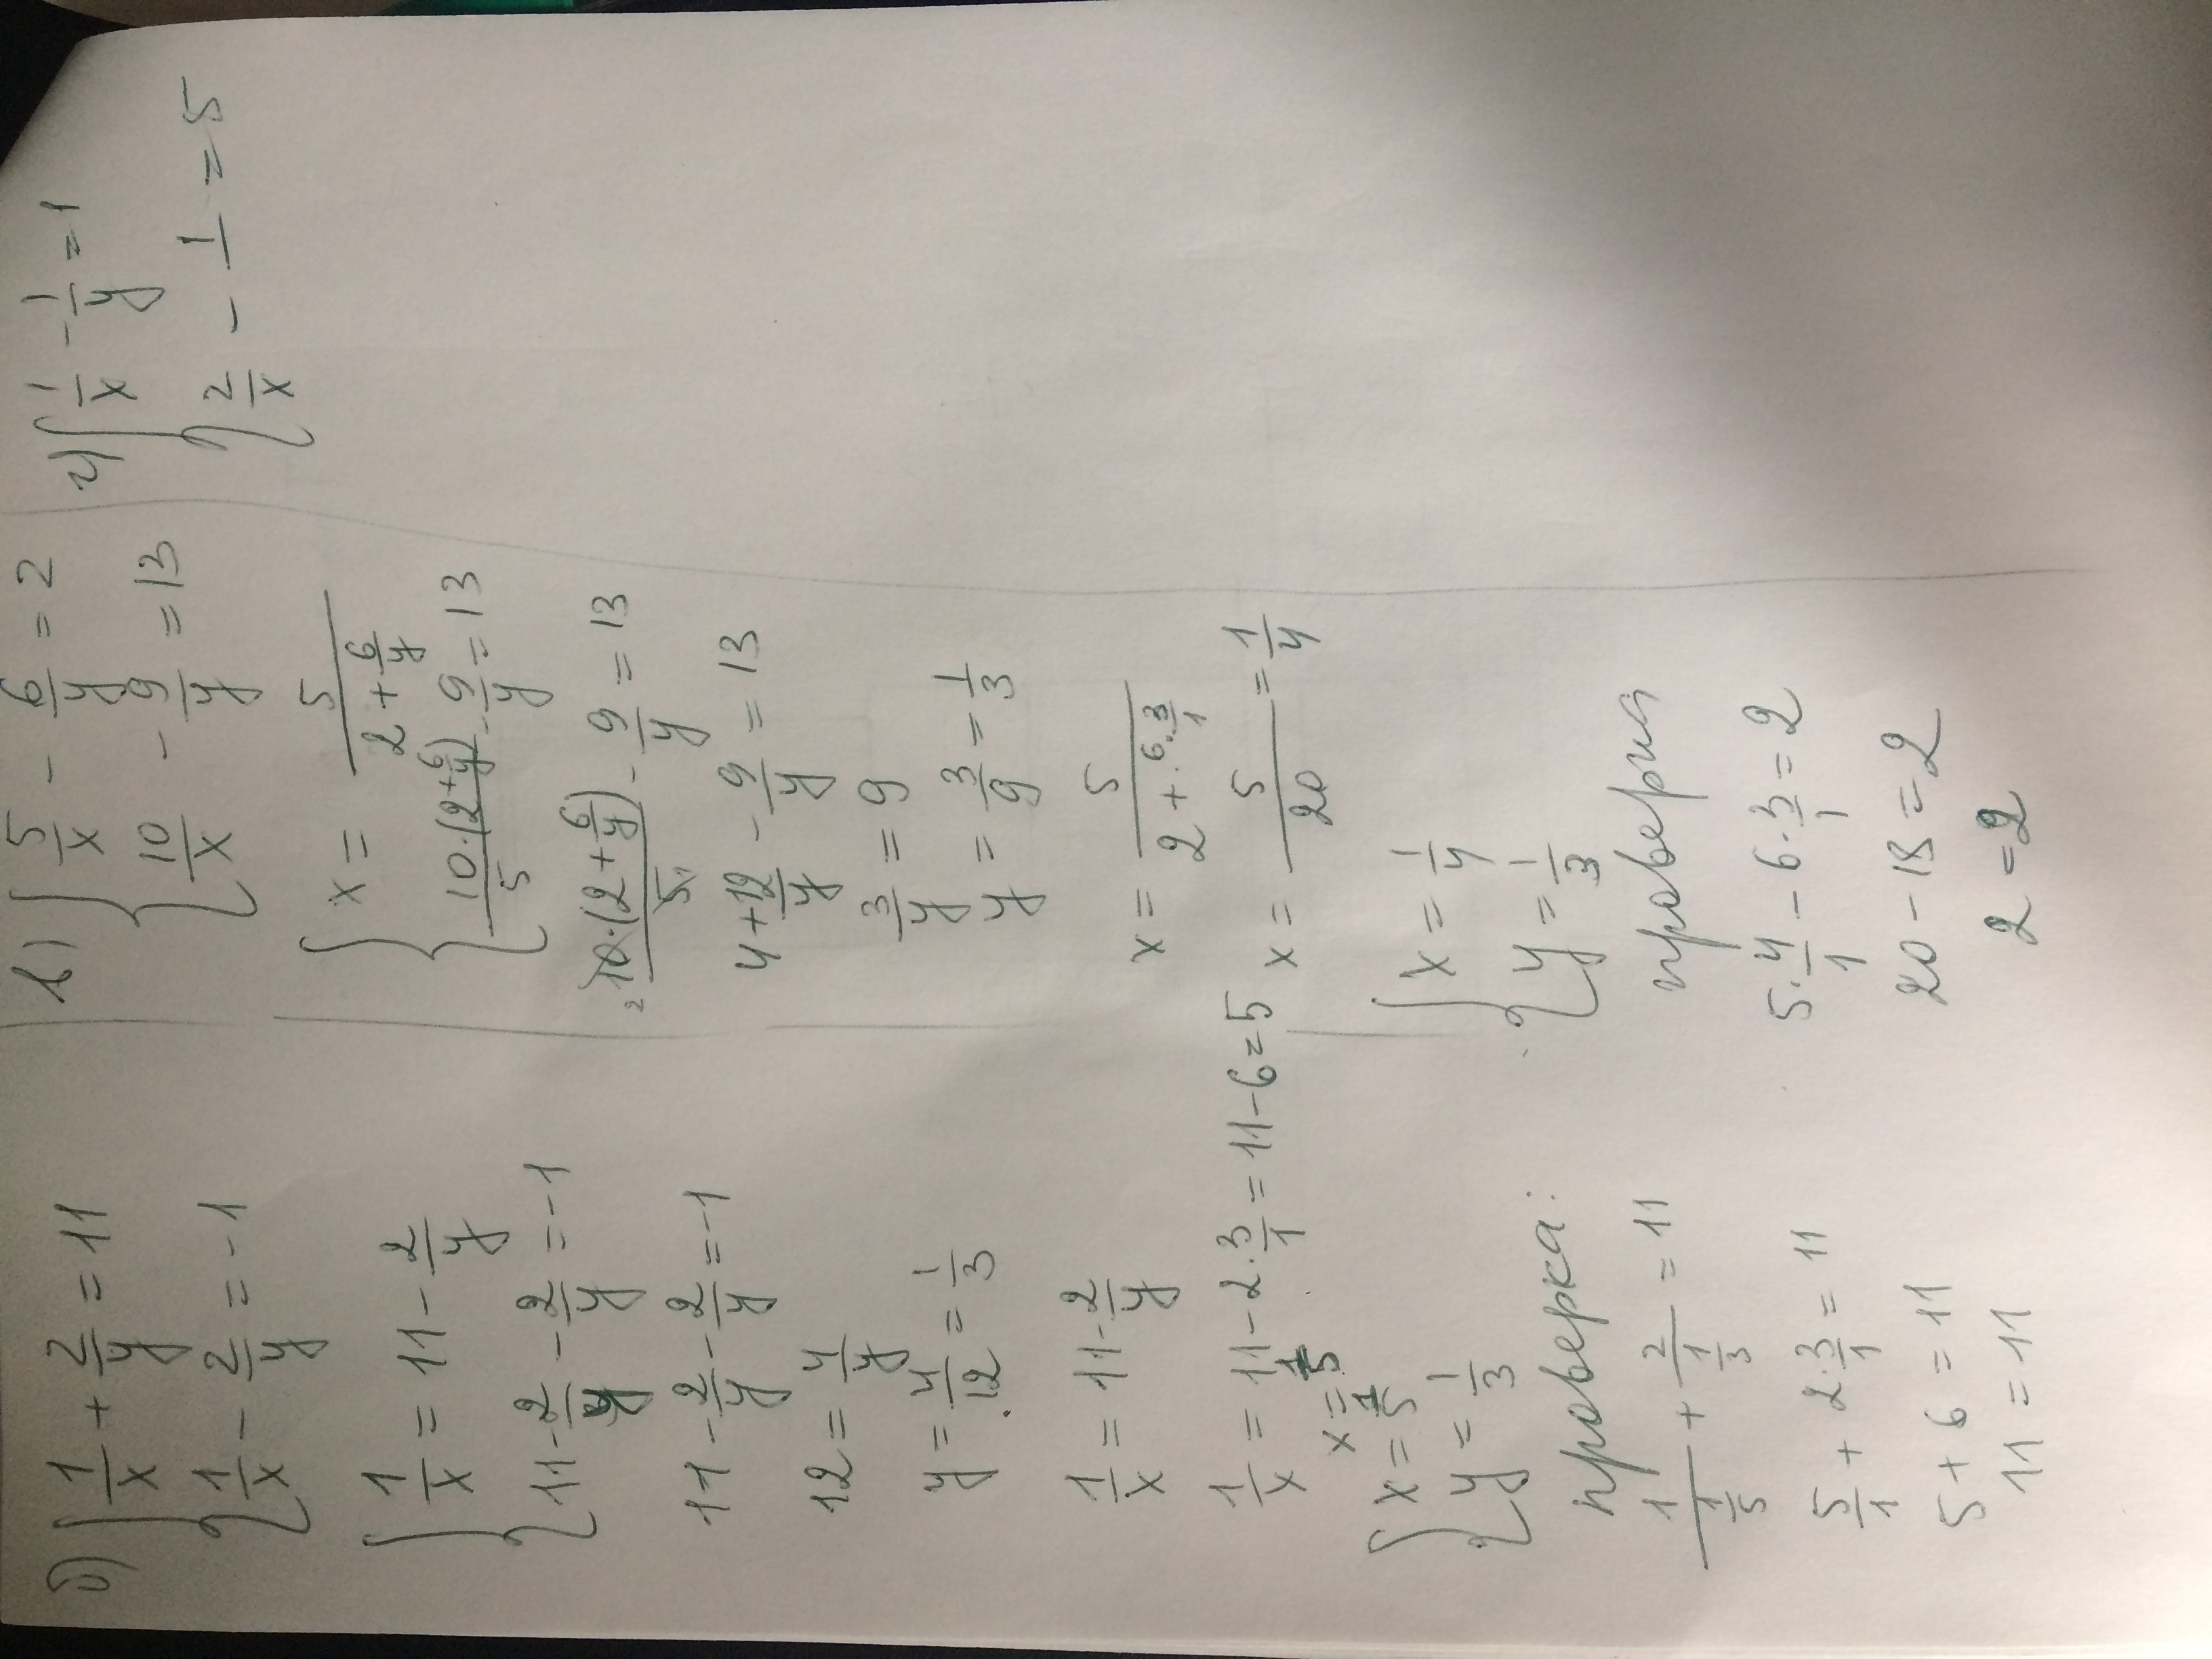 б) { 1/x + 2/y = 11
1/x - 2/y = -1
{ 1/x = 11 - 2/y
11 - 2/y - 2/y = -1
11 - 2/y - 2/y = -1
12 = 4/y
y = 4/12 = 1/3
1/x = 11 - 2/y
1/x = 11 - 2 · 3/1 = 11 - 6 = 5
x = 1/5
{ x = 1/5
y = 1/3
проверка:
1/(1/5) + 2/(1/3) = 11
5/1 + 2 · 3/1 = 11
5 + 6 = 11
11 = 11
в) { 5/x - 6/y = 2
10/x - 9/y = 13
{ x = 5/(2 + 6/y)
10·(2 + 6/y)/5 - 9/y = 13
2 10·(2 + 6/y)/5 1 - 9/y = 13
4 + 12/y - 9/y = 13
3/y = 9
y = 3/9 = 1/3
x = 5/(2 + 6 · 3/1)
x = 5/20 = 1/4
{ x = 1/4
y = 1/3
проверка
5 · 4/1 - 6 · 3/1 = 2
20 - 18 = 2
2 = 2
г) { 1/x - 1/y = 1
2/x - 1/ = 5